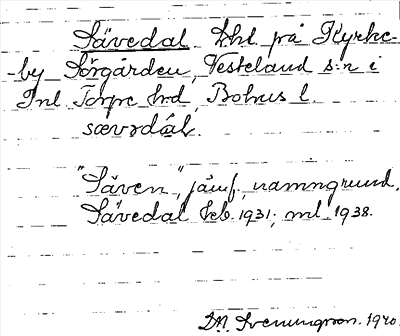 Sävedal. Lht på Kyrke-
by Sörgården, Västerlanda s:n i
Inl. Torpe hrd, Bohus l.
sœvədàl.
"Säven", jämf. namngrund.
Sävedal Jeb. 1931; ml 1938.
D. N. Svenungsson. 1940